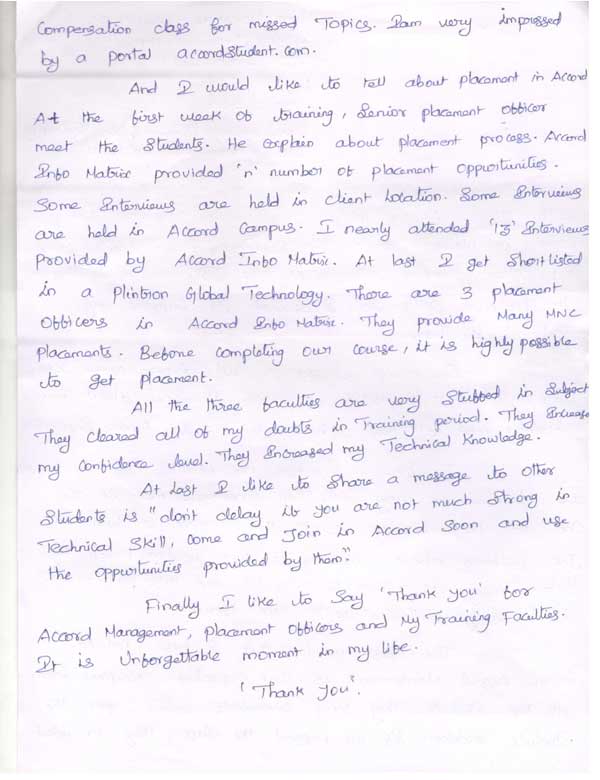 Compensation class for missed Topics. I am very impressed
by a portal accordstudent.com.
And I would like to tell about placement in Accord
At the first week of training, Senior placement officer
meet the Students. He explain about placement process. Accord
Info Matrix provided 'n' number of placement oppurtunities.
Some Interviews are held in client Location. Some Interviews
are held in Accord Campus. I nearly attended '13' Interviews
provided by Accord Info Matrix. At last I get Shortlisted
in a Plintron Global Technology. There are 3 placement
Officers in Accord Info Matrix. They provide Many MNC
placements. Before completing our course, it is highly possible
to get placement.
All the three faculties are very Stuffed in Subject
They cleared all of my doubts in Training period. They Increase
my confidence level. They Increased my Technical Knowledge.
At Last I like to Share a message to other
Students is "don't delay if you are not much Strong in
Technical Skill, come and Join in Accord Soon and use
the oppurtunities provided by them."
Finally I like to Say 'Thank you' for
Accord Management, placement Officers and My Training Faculties.
It is Unforgettable moment in my life.
'Thank you'.